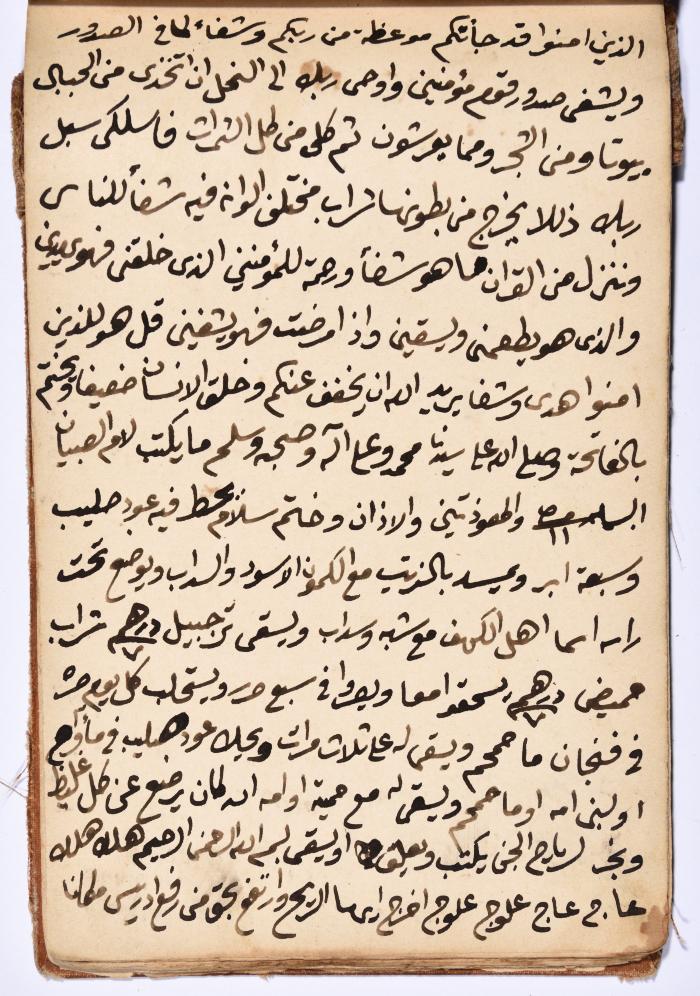 الذين امنوا قد جأتكم موعظة من ربكم وشفاء لما في الصدور
ويشفى صدور قوم مؤمنين واوحى ربك الى النحل ان اتخذى من الجبال
بيوتا ومن الشجر ومما يعرشون ثم كلى من كل الثمرات فاسلكى سبل
ربك ذللا يخرج من بطونها شراب مختلف الوانه فيه شفأ للناس
وننزل من القران ما هو شفأ ورحمة للمؤمنين الذى خلقنى فهو يهدين
والذى هو يطعمنى ويسقين واذا مرضت فهو يشفين قل هو للذين
امنوا هدى وشفا يريد الله ان يخفف عنكم وخلق الانسان ضعيفا ويختم
بالفاتحة وصلى الله على سيدنا محمد وعلى اله وصحبه وسلم ما يكتب لام الصبيان
البسملة ١١ والمعوذتين والاذان وختم سلام يحط فيه عود صليب
وسبعة ابر ويمسد بالزيت مع الكمون الاسود والسداب ويوضع تحت
راسه اسما اهل الكهف مع شبه وسداب ويسقى ترجبيل درهم ٧ شراب
حميض درهم ٧ يسحقو امعا ويصروا في سبع صرر ويستحلب كل يوم صره
في فنجان ما محمم ويسقى له على ثلاث مرات ويحك عود صليب في
او لبن امه او ما محمم ويسقى له مع حمية او امه ان كان يرضع عن كل غليظ
وبخر لرياح الجن يكتب ويعلق او يسقى بسم الله الرحمن الرحيم هلك هلك
عاج عاج علوج علوج اخرج ايها الريح وارتفع بحق من رفع ادريس مكانا